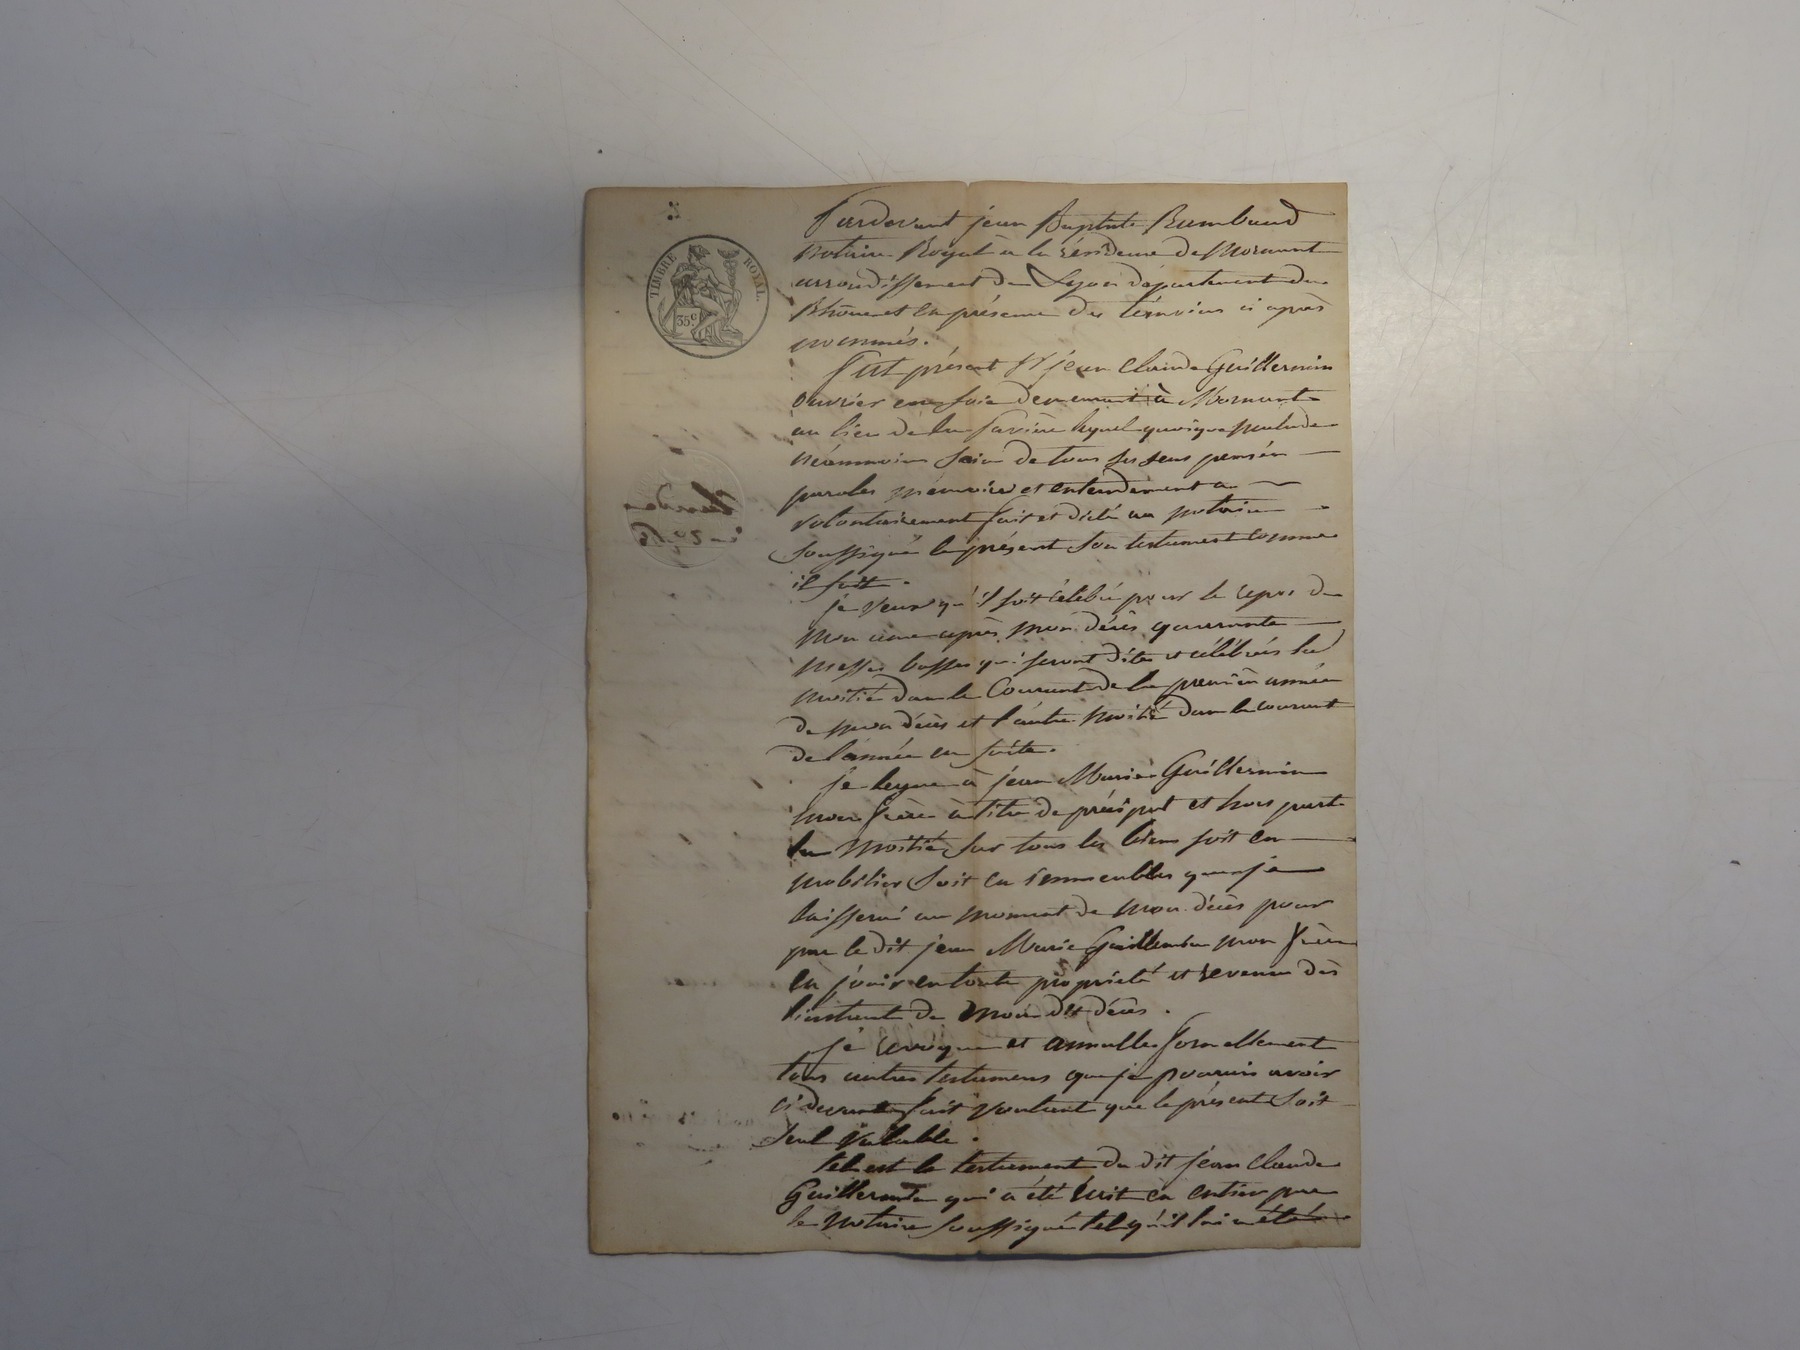 TIMBRE ROYAL.
35 c
Pardevant jean Baptiste Rambaud
notaire Royal à la résidence de Mornant
arrondissement de Lyon département du
Rhône et en présence des témoins ci après
nommés.
Fut présent Sr jean Claude Guillermin
ouvrier en soie demeurant à Mornant
au lieu de la lequel quoique malade
néanmoins sain de tous ses sens pensées
paroles mémoire et entendement a
volontairement fait et dicté au notaire
soussigné le présent son testament comme
il suit.
je veux qu'il soit célébré pour le repos de
mon ame après mon décès quarante
messes basses qui seront dites et célébrées la
moitié dans le Courant de la première année
de mon décès et l'autre moitié dans le courant
de l'année en suite.
je legue à jean Marie Guillermin
mon frère à titre de préciput et hors part
la moitié sur tous les biens soit en
mobilier soit en immeubles que je
laisserai au moment de mon décès pour
par le dit jean Marie Guillermin mon frère
en jouir en toute propriété et revenu dès
l'instant de mon dit décès.
je révoque et annulle formellement
tous autres testamens que je pourrais avoir
ci devant fait voulant que le présent soit
seul valable.
tel est le testament du dit jean Claude
Guillermin qui a été écrit en entier par
le notaire soussigné tel qu'il lui a été